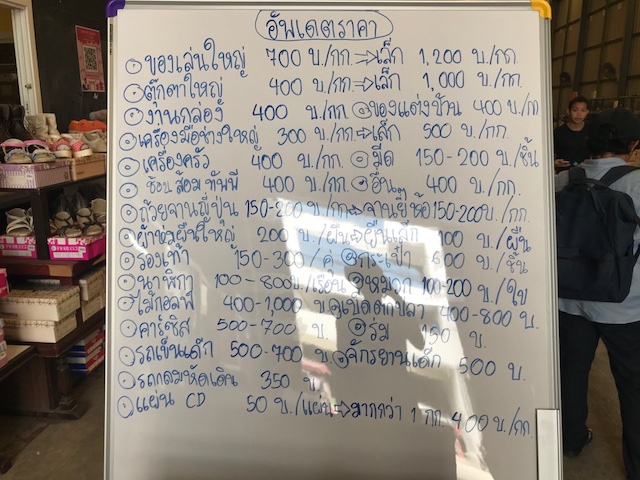 อัพเดตราคา
ของเล่นใหญ่ 700 บ./กก. ⇒ เล็ก 1,200 บ./กก.
ตุ๊กตาใหญ่ 400 บ./กก. ⇒ เล็ก 1,000 บ./กก.
งานกล่อง 400 บ./กก. ของแต่งบ้าน 400 บ./กก
เครื่องมือช่างใหญ่ 300 บ./กก. ⇒ เล็ก 500 บ./กก.
เครื่องครัว 400 บ./กก. มีด 150-200 บ./ชิ้น
ช้อน ส้อม ทัพพี 400 บ./กก. อื่น 400 บ./กก.
ถ้วยจานญี่ปุ่น 150-200 บ./กก ⇒ จานยี่ห้อ 150-200 บ./กก.
ผืนใหญ่ 200 บ./ผืน ⇒ ผืนเล็ก 100 บ./ผืน
รองเท้า 150-300 /คู่ กระเป๋า 600 บ./ชิ้น
นาฬิกา 100-800 บ./เรือน หมวก 100-200 บ./ใบ
ไม้กอล์ฟ 400-1,000 บ. เบ็ดตกปลา 400-800 บ.
คาร์ซีส 500-700 บ. ร่ม 150 บ.
รถเข็นเด็ก 500-700 บ. จักรยานเด็ก 500 บ.
รถกลมหัดเดิน 350 บ
แผ่น CD 50 บ./แผ่น ⇒ มากกว่า 1 กก. 400 บ./กก.